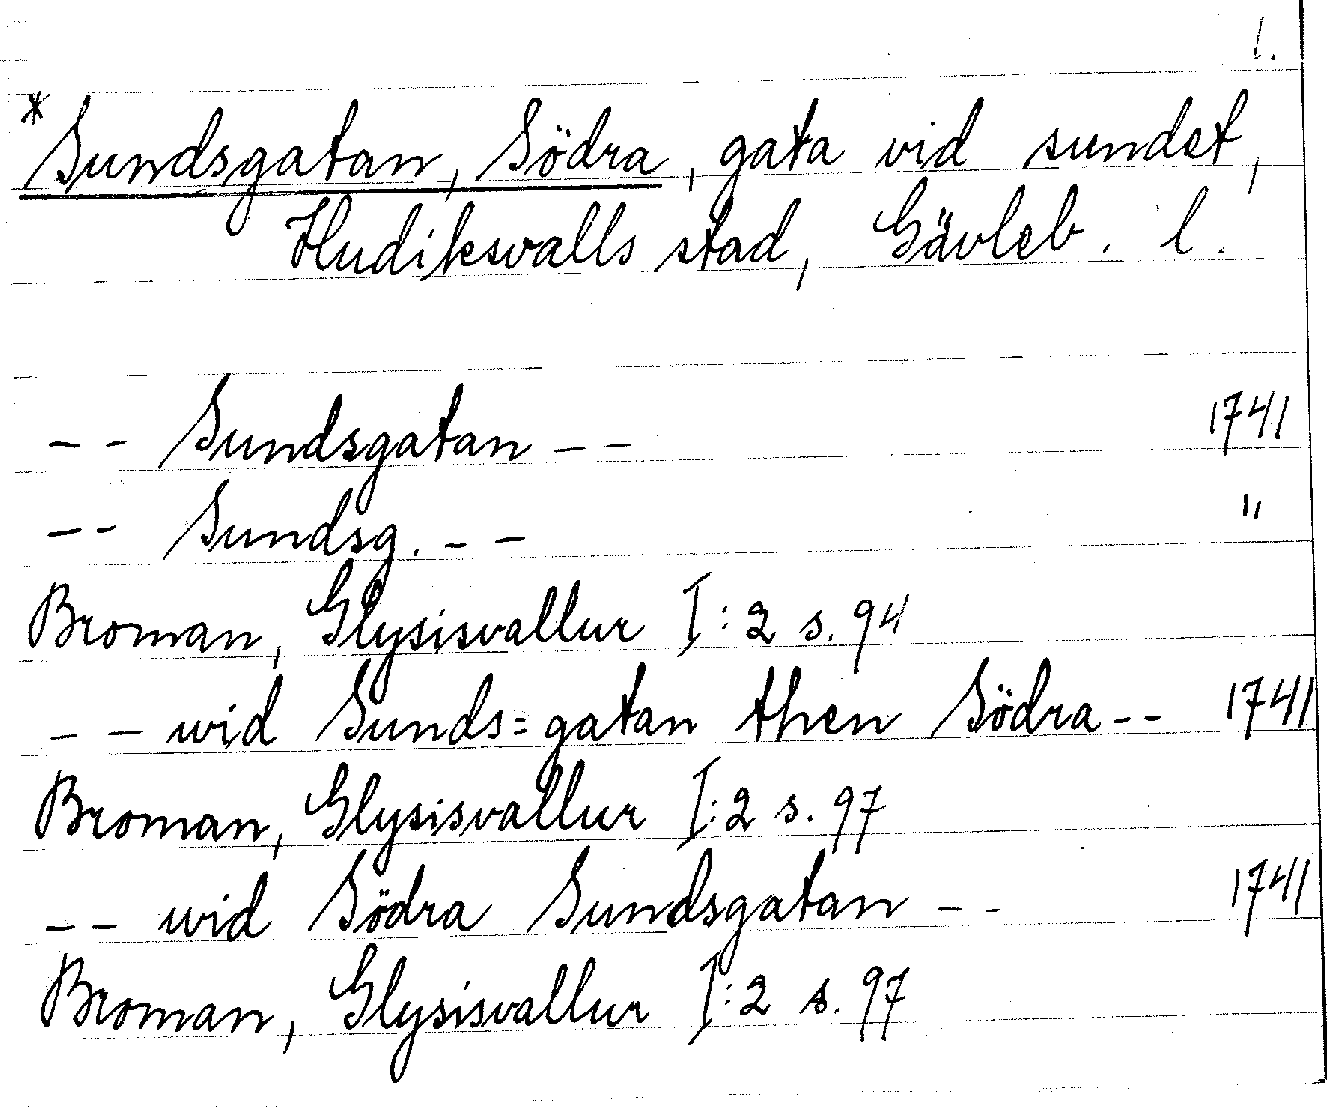 1.
*Sundsgatan, Södra, gata vid sundet,
Hudiksvalls stad, Gävleb. l.
-- Sundsgatan -- 1741
-- Sundsg. -- "
Broman, Glysisvallur I:2 s. 94
-- wid Sunds=gatan then Södra -- 1741
Broman, Glysisvallur I:2 s. 97
-- wid Södra Sundsgatan -- 1741
Broman, Glysisvallur I:2 s. 97